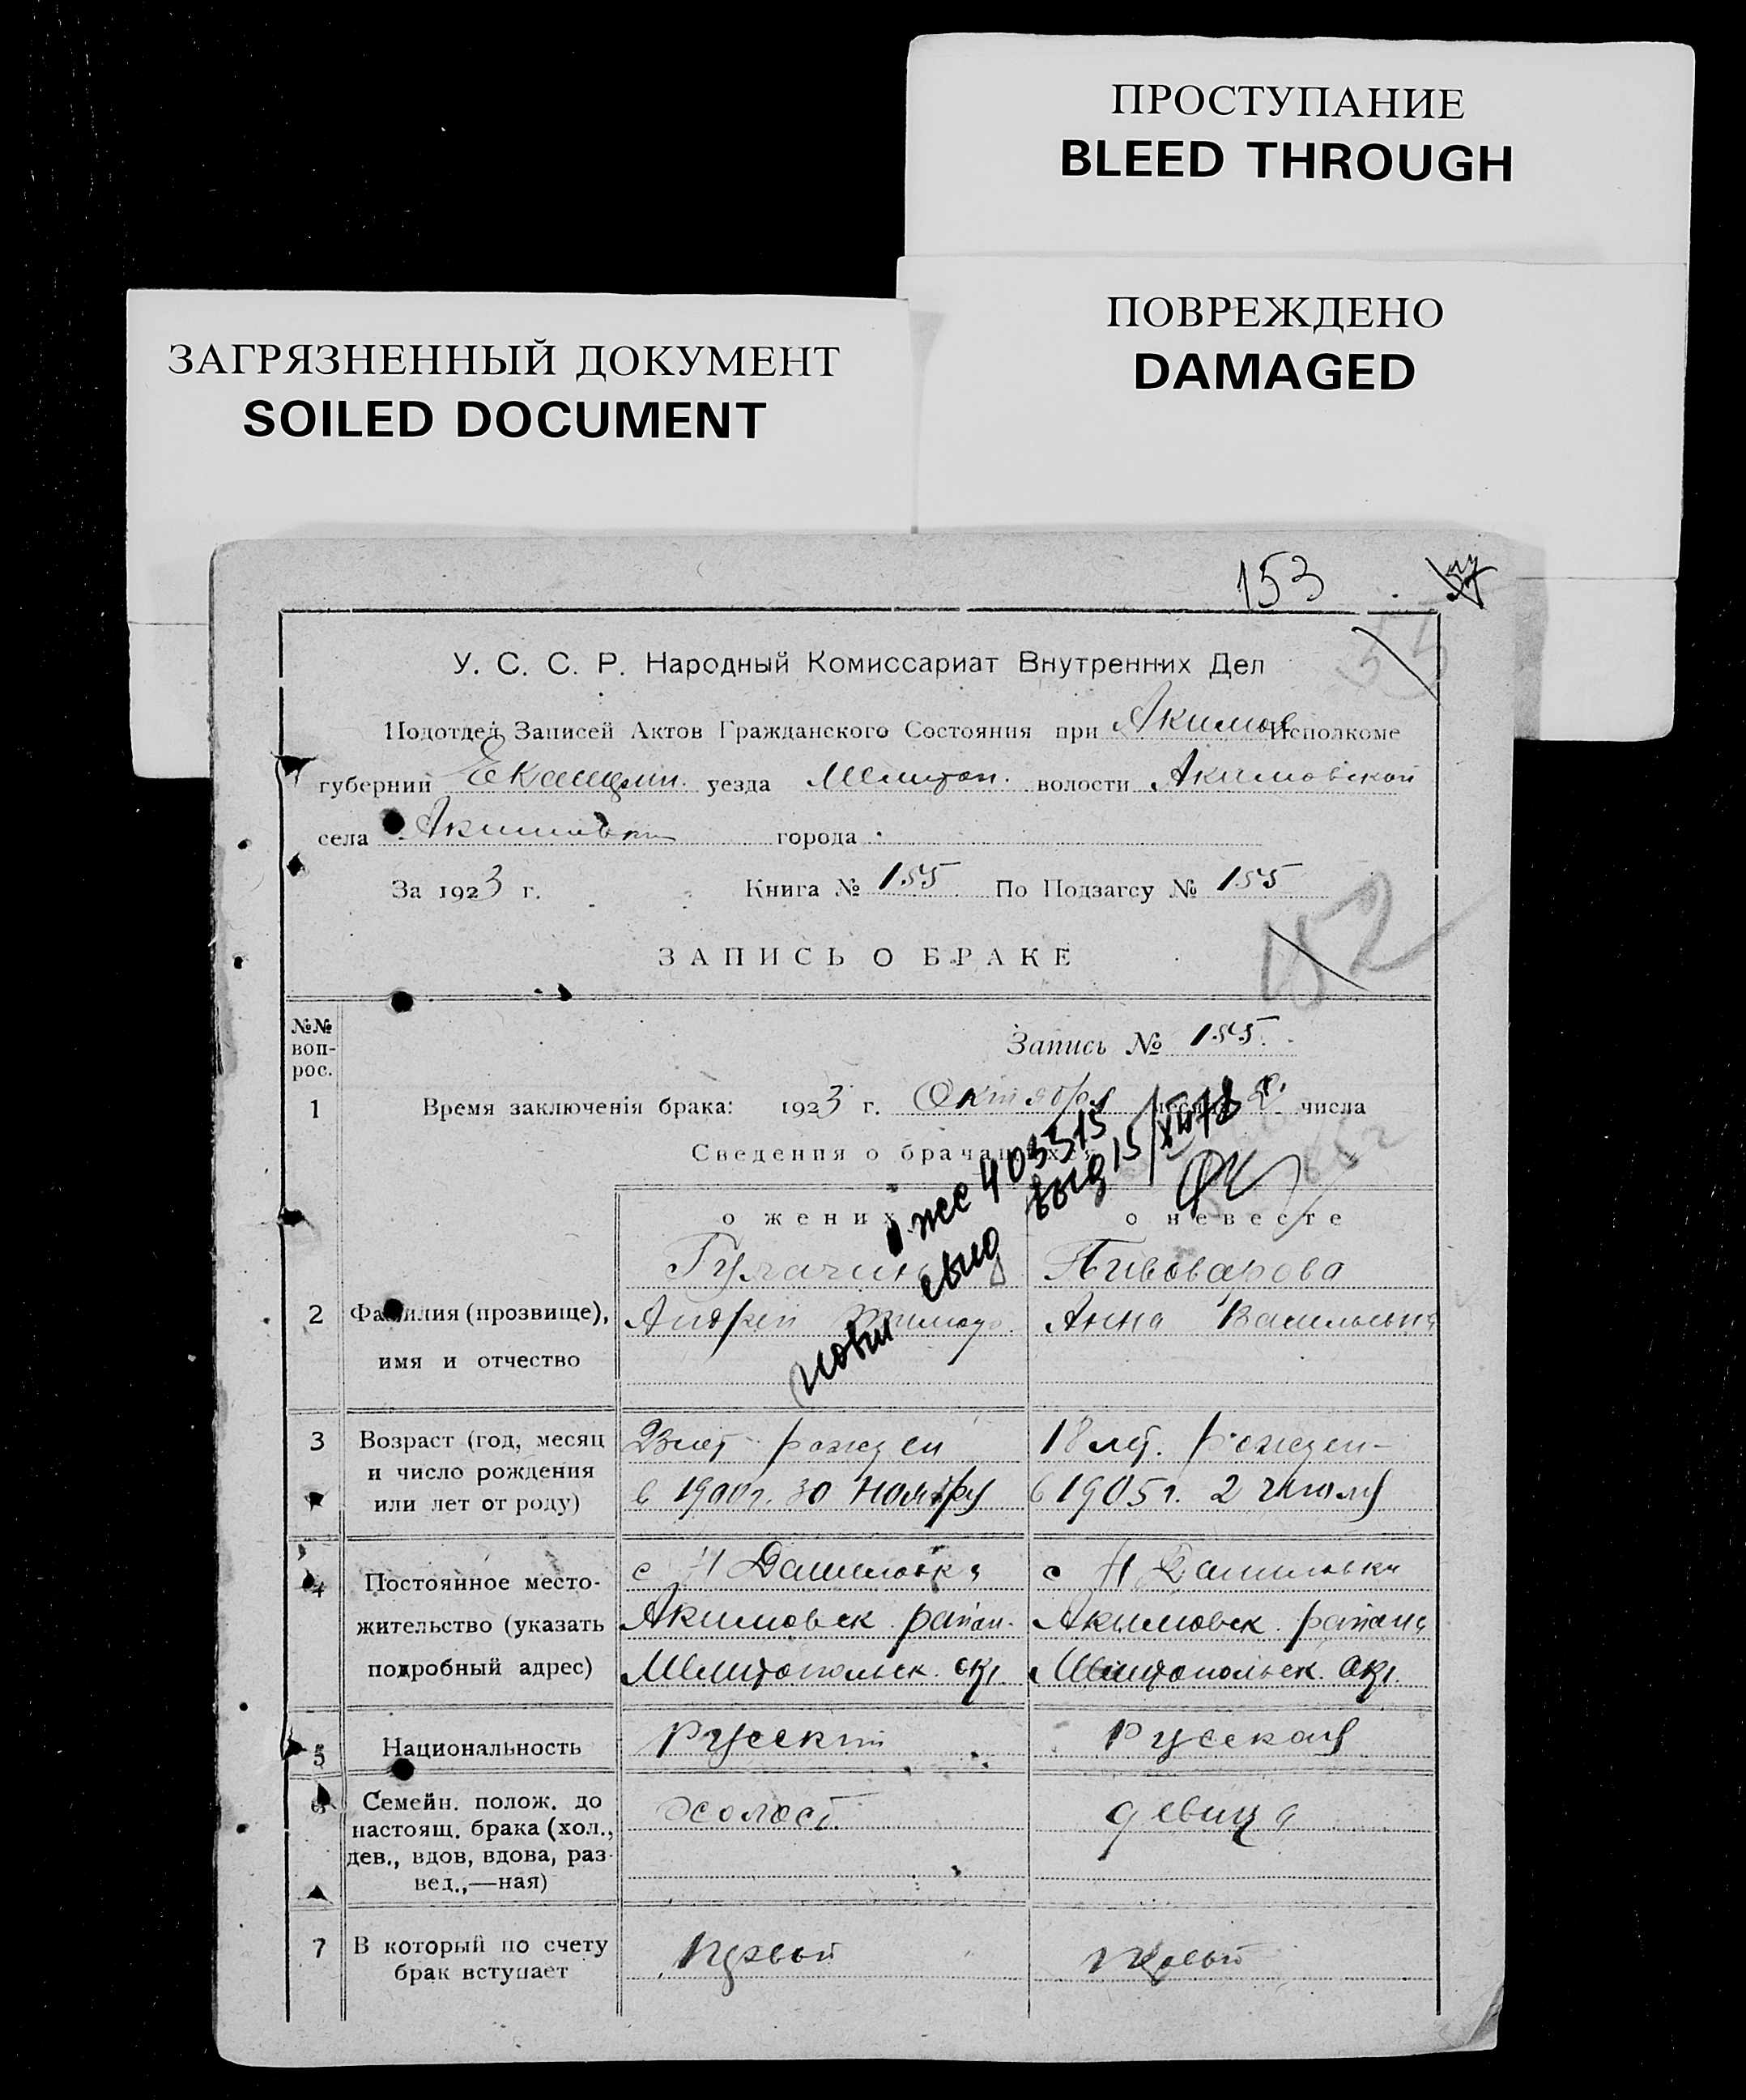 ПРОСТУПАНИЕ
BLEED THROUGH
ПОВРЕЖДЕНО
DAMAGED
ЗАГРЯЗНЕННЫЙ ДОКУМЕНТ
SOILED DOCUMENT
153
У. С. С. Р. Народный Комиссариат Внутренних Дел
Подотдел Записей Актов Гражданского Состояния при Акимов Исполкоме
губернии уезда Мелитоп. волости Акимовской
села Акимовки города
За 1923 г. Книга № 155 По Подзагсу № 155
152
ЗАПИСЬ О БРАКЕ
№№ воп-рос.
Запись № 155.
1 Время заключенія брака: 1923 г. Октября числа
Сведения о брачащихся
о жених
о невесте
403515
Пивоварова
2 Фамилия (прозвище), имя и отчество
Андрей
Анна Васильевна
3 Возраст (год, месяц и число рождения или лет от роду)
рожден
в 1900 г. 30 Ноября
18 лет. рожден-
в 1905 г. 2 Июля
4 Постоянное место-жительство (указать подробный адрес)
с Н Даниловка
Акимовск. район.
Мелитопольск. окр.
с Н Даниловки
Акимовск. района
Мелитопольск. окр.
5 Национальность
Русский
Русская
6 Семейн. полож. до настоящ. брака (хол., дев., вдов, вдова, раз-вед.,—ная)
холост.
девица
7 В который по счету брак вступает
первый
первый